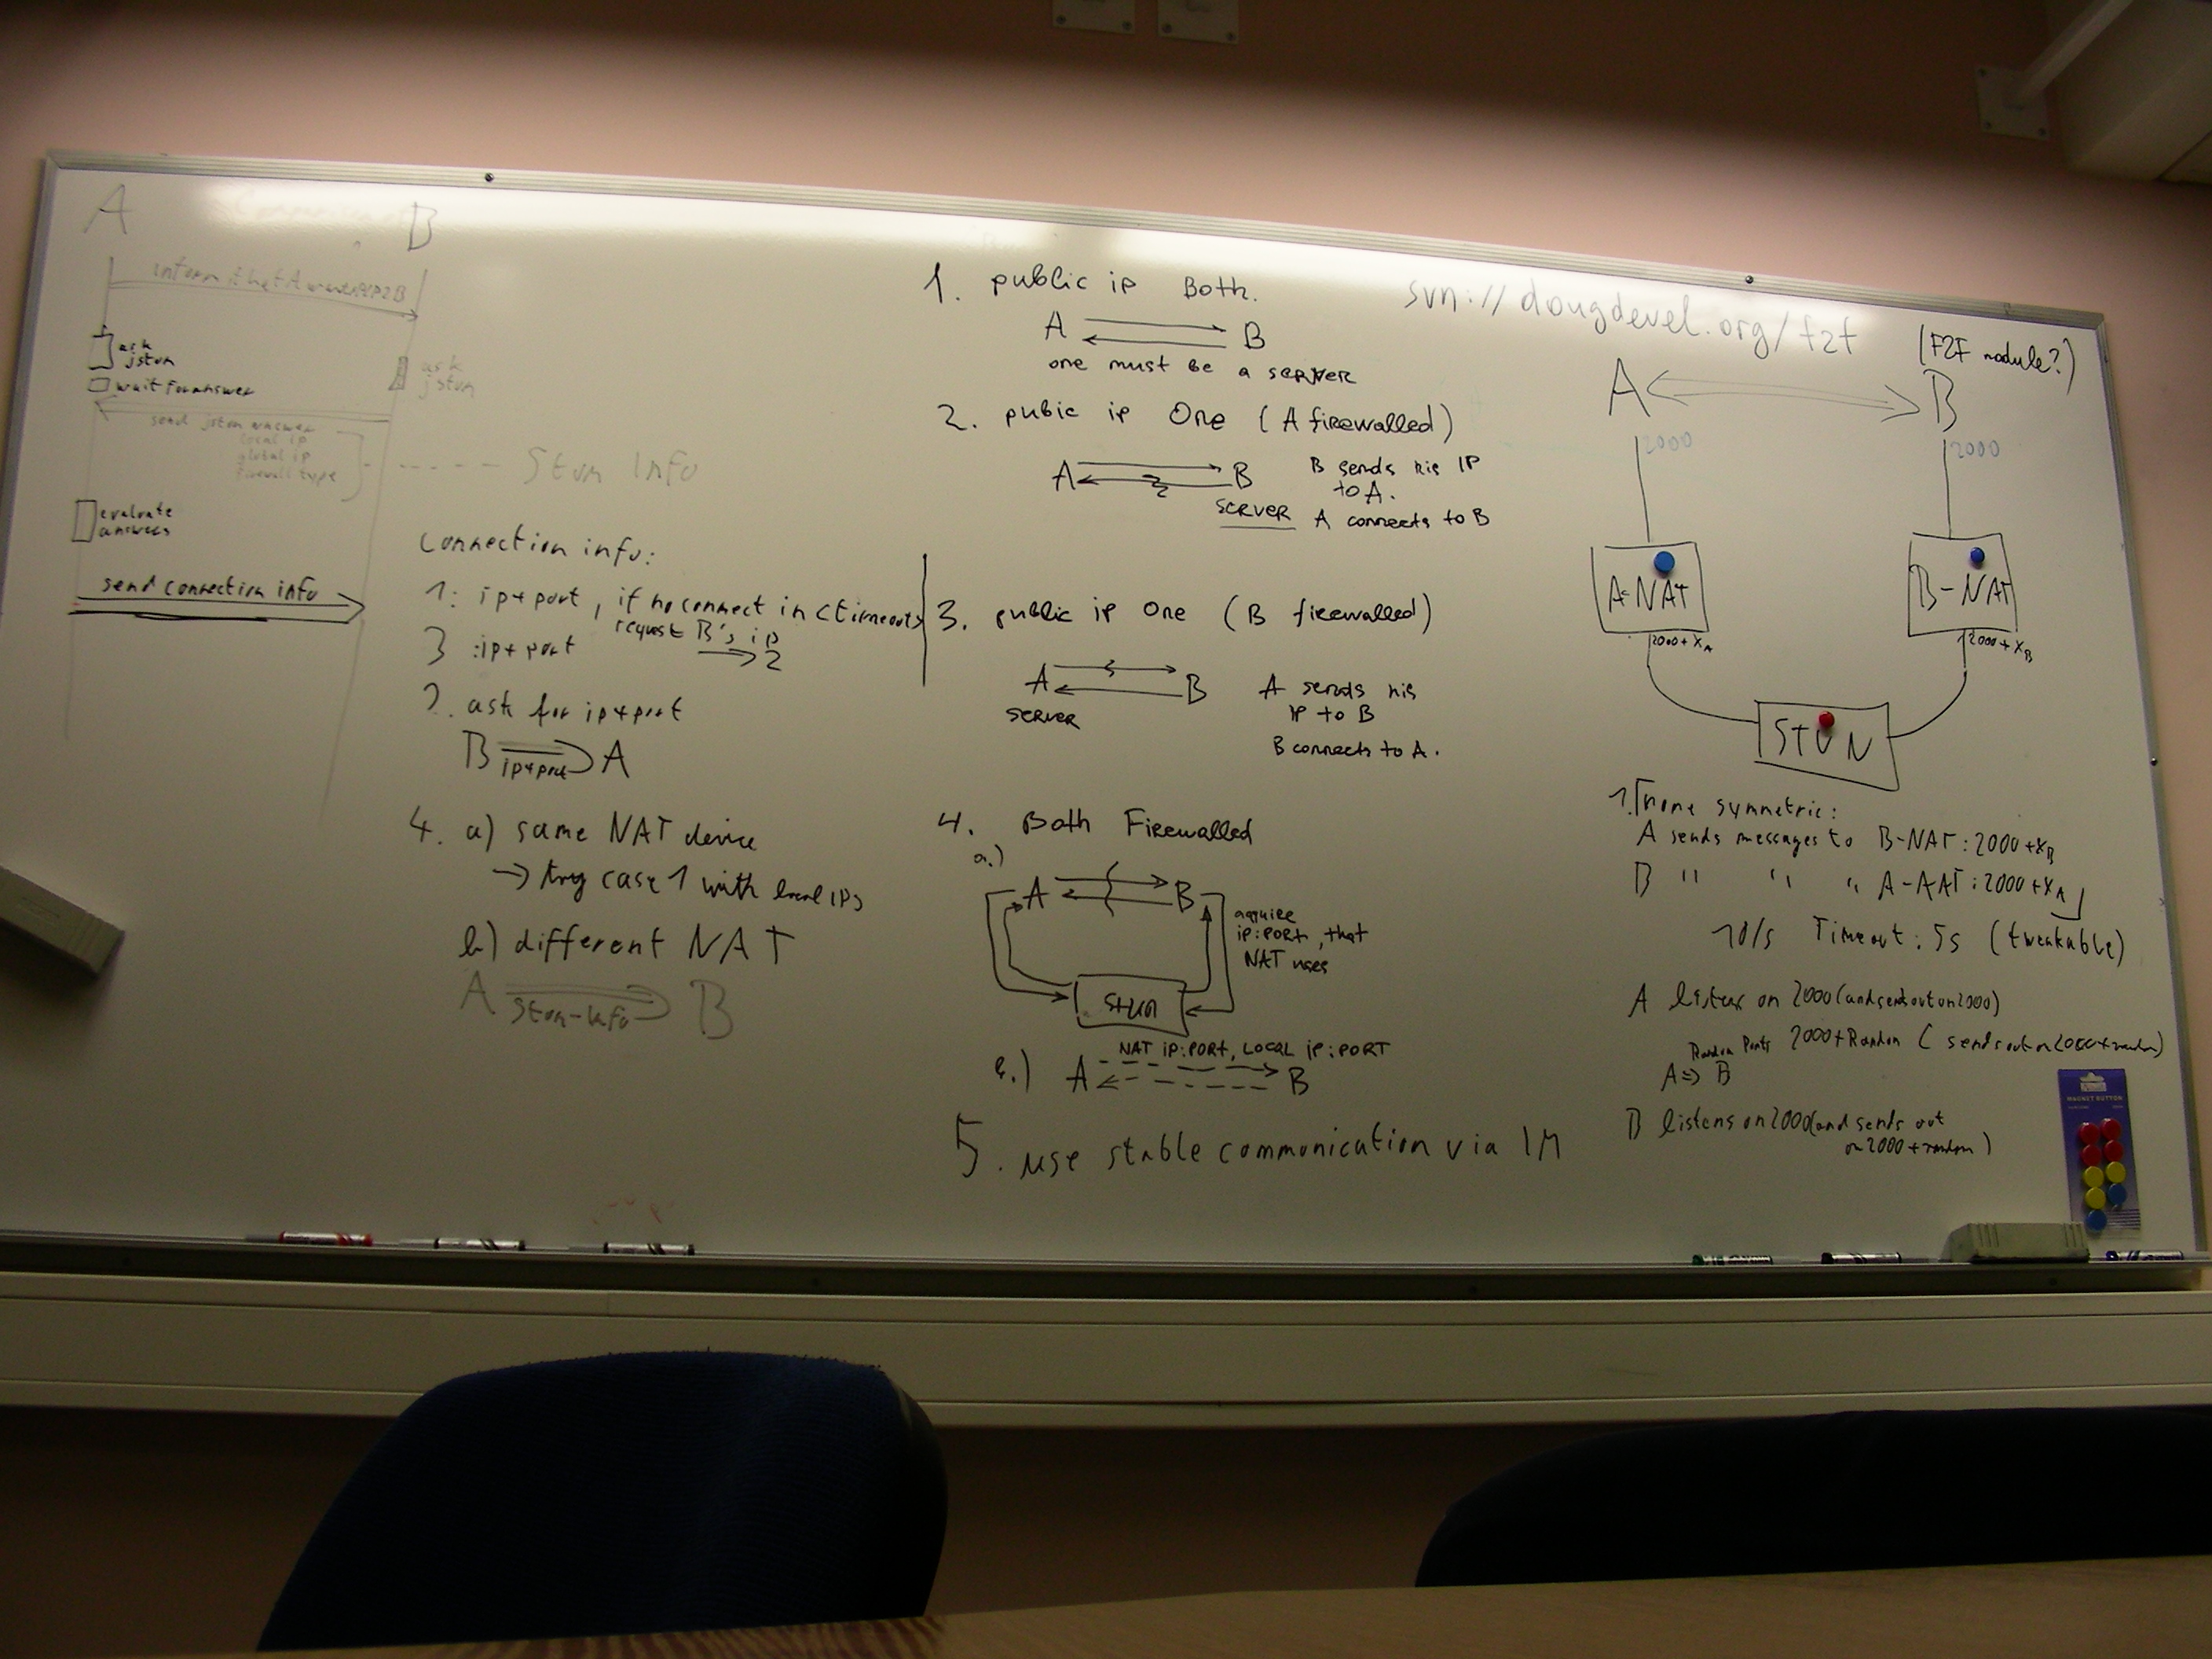 A
B
ask
jstun
wait for answer
ask
jstun
send jstun answer
local ip
global ip
Firewall type
Stun Info
evaluate
answers
send connection info
Connection info:
1: ip+port, if no connect in (timeouts)
request B's ip
→ 2
3 :ip+port
2. ask for ip+port
B ip+port A
4. a) same NAT device
→ try case 1 with local IPs
b) different NAT
A Stun-Info B
1. public ip Both.
A B
one must be a SERVER
2. pubic ip One (A firewalled)
A B
SERVER
B sends his IP
to A.
A connects to B
3. public ip One (B firewalled)
A B
SERVER
A sends his
IP to B
B connects to A.
4. Both Firewalled
a.)
A B
acquire
ip:PORT, that
NAT uses
STUN
NAT ip:PORT, LOCAL ip:PORT
b.) A B
5. use stable communication via IM
svn://dougdevel.org/f2f
(F2F module?)
A B
2000 2000
A-NAT B-NAT
2000+XA 2000+XB
STUN
1. none symmetric:
A sends messages to B-NAT:2000+XB
B " " " A-AAT:2000+XA
10/s Timeout: 5s (tweakable)
A listens on 2000 (and sends out on 2000)
Random Ports 2000+Random (sends out on 2000+random)
A => B
B listens on 2000 (and sends out
on 2000+random)
MAGNET BUTTON